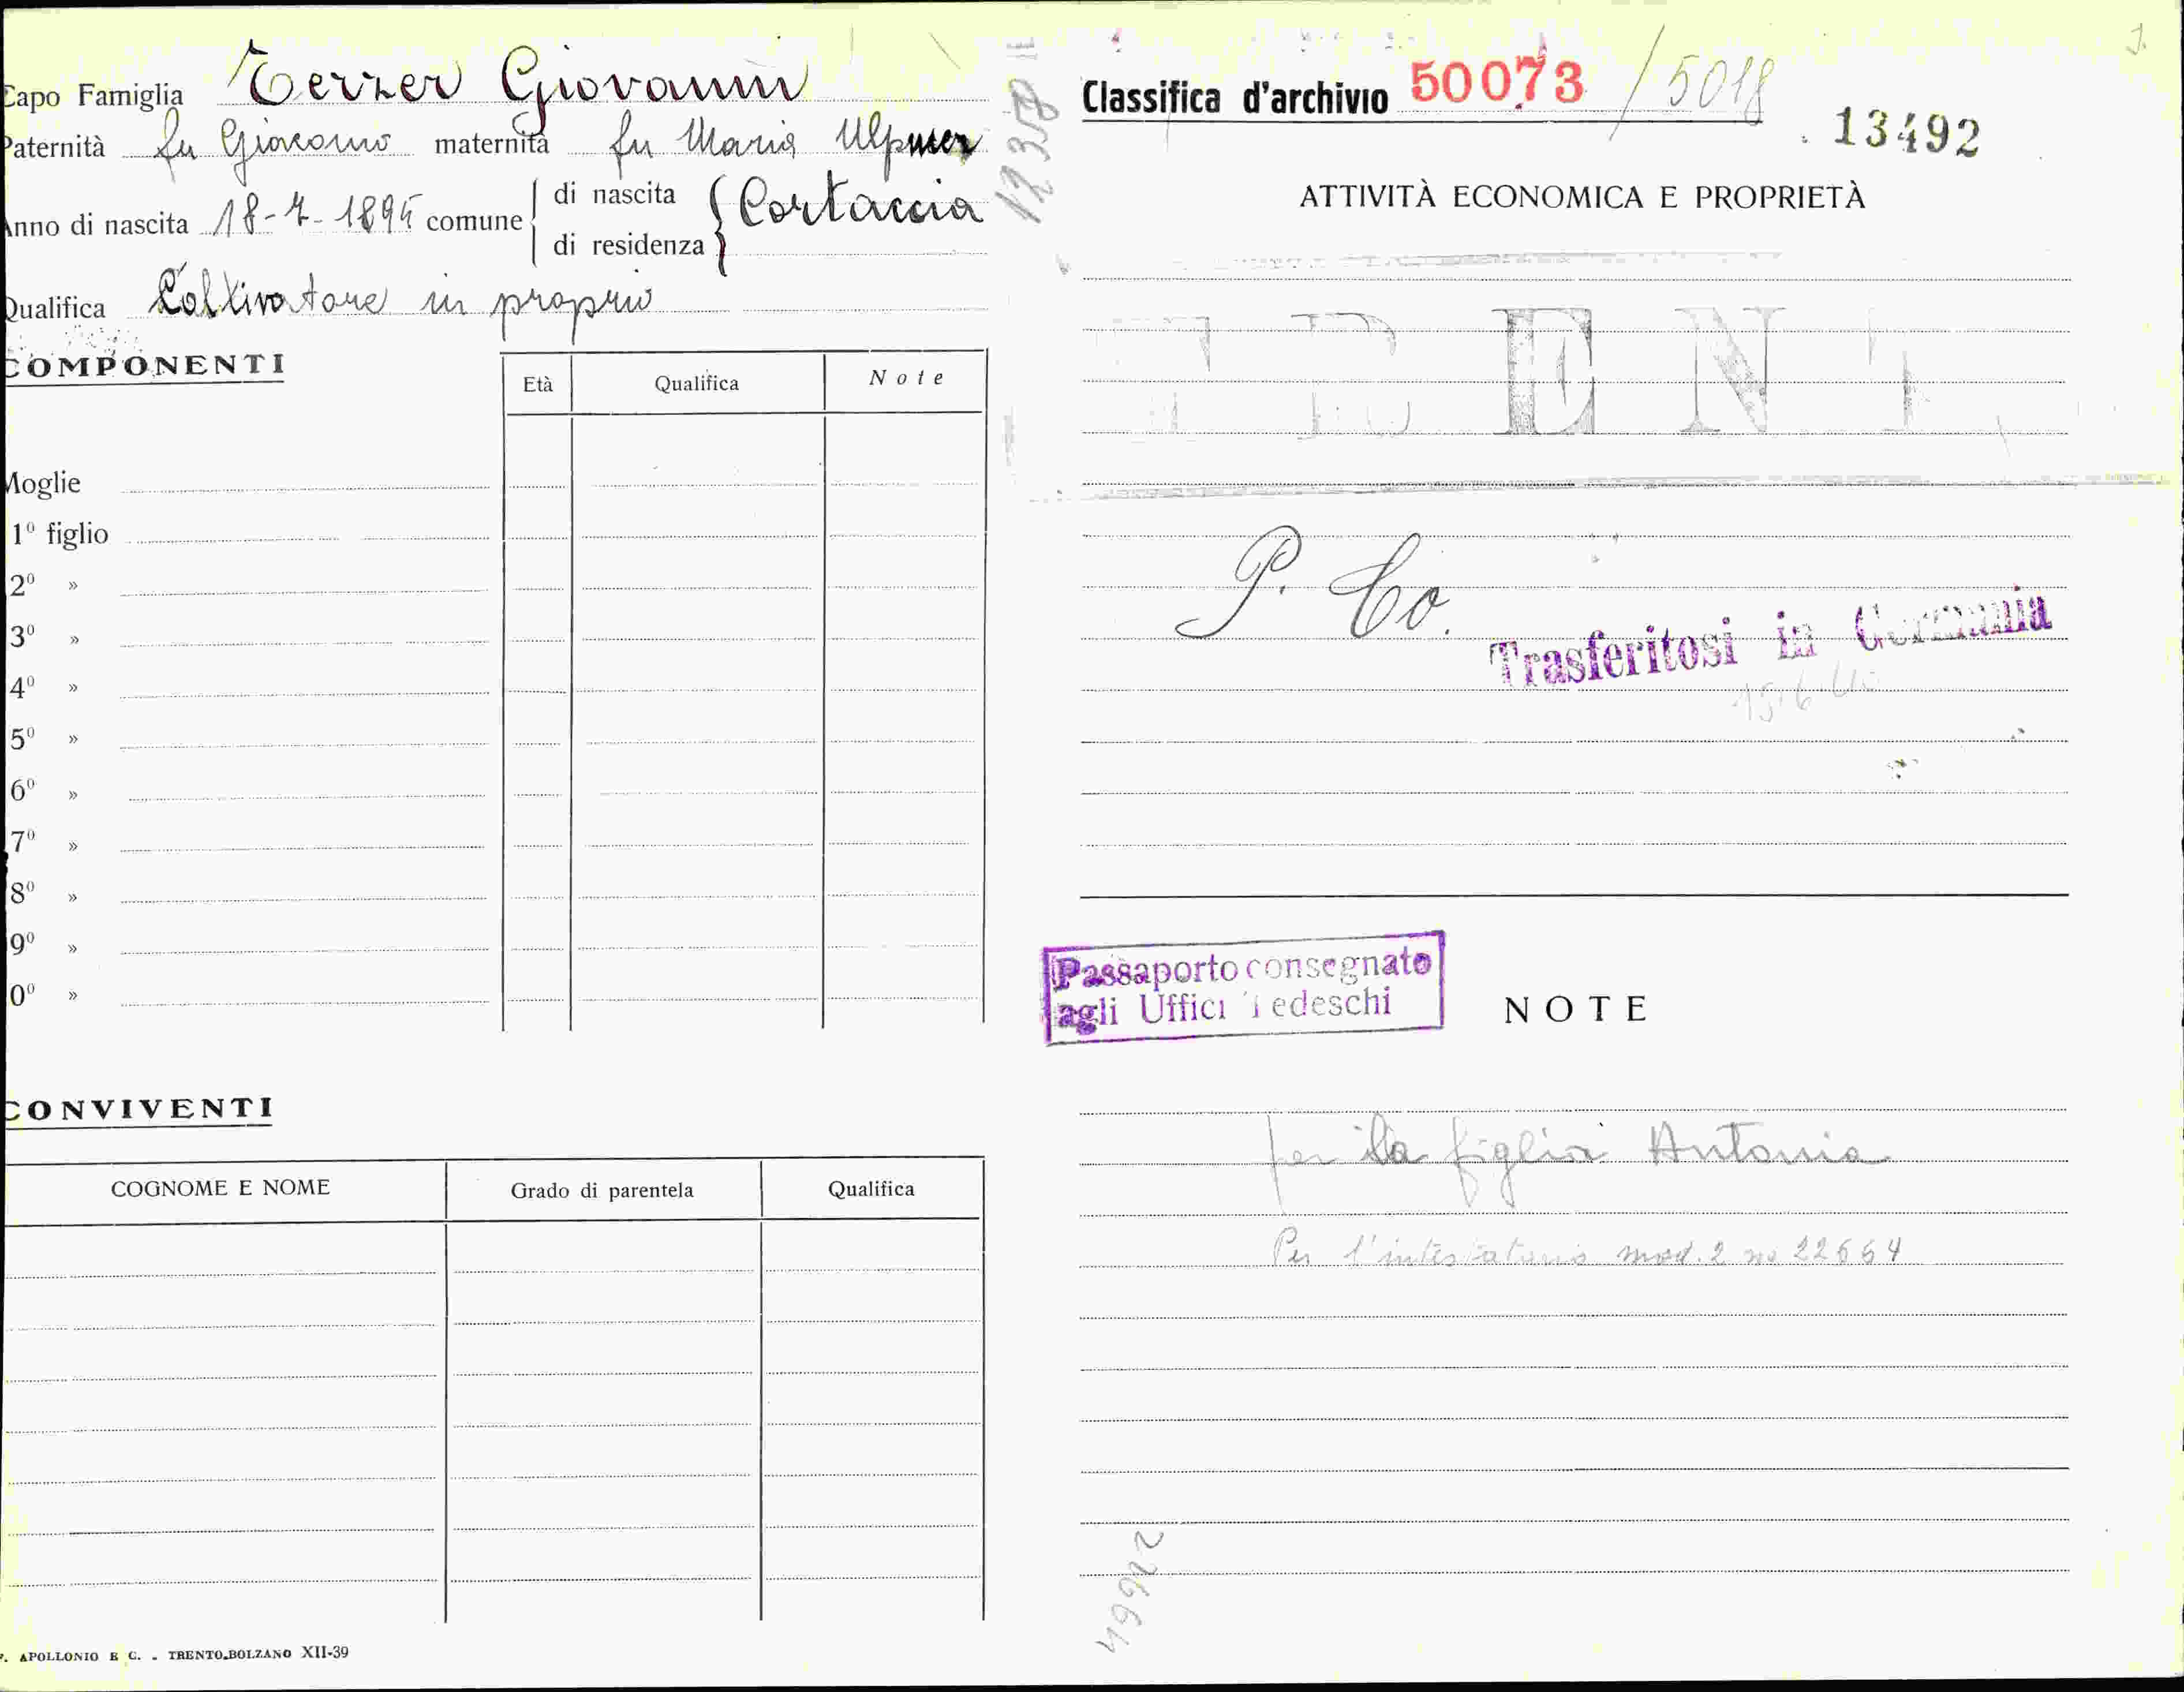 Capo Famiglia Terzer Giovanni
Paternità fu Giacomo maternità fu Maria
Anno di nascita 18-7-1895 comune di nascita Cortaccia
di residenza
Qualifica Coltivatore in proprio
COMPONENTI
Età Qualifica Note
Moglie
1º figlio
2º »
3º »
4º »
5º »
6º »
7º »
8º »
9º »
0º »
CONVIVENTI
COGNOME E NOME Grado di parentela Qualifica
. APOLLONIO E C. - TRENTO-BOLZANO XII-39
12358
Classifica d'archivio 50073 / 5018
13492
ATTIVITÀ ECONOMICA E PROPRIETÀ
P. Co.
Trasferitosi in Germania
Passaporto consegnato
agli Uffici Tedeschi
NOTE
per la figlia Antonia
Per l'intestatario mod. 2 no 22664
22664